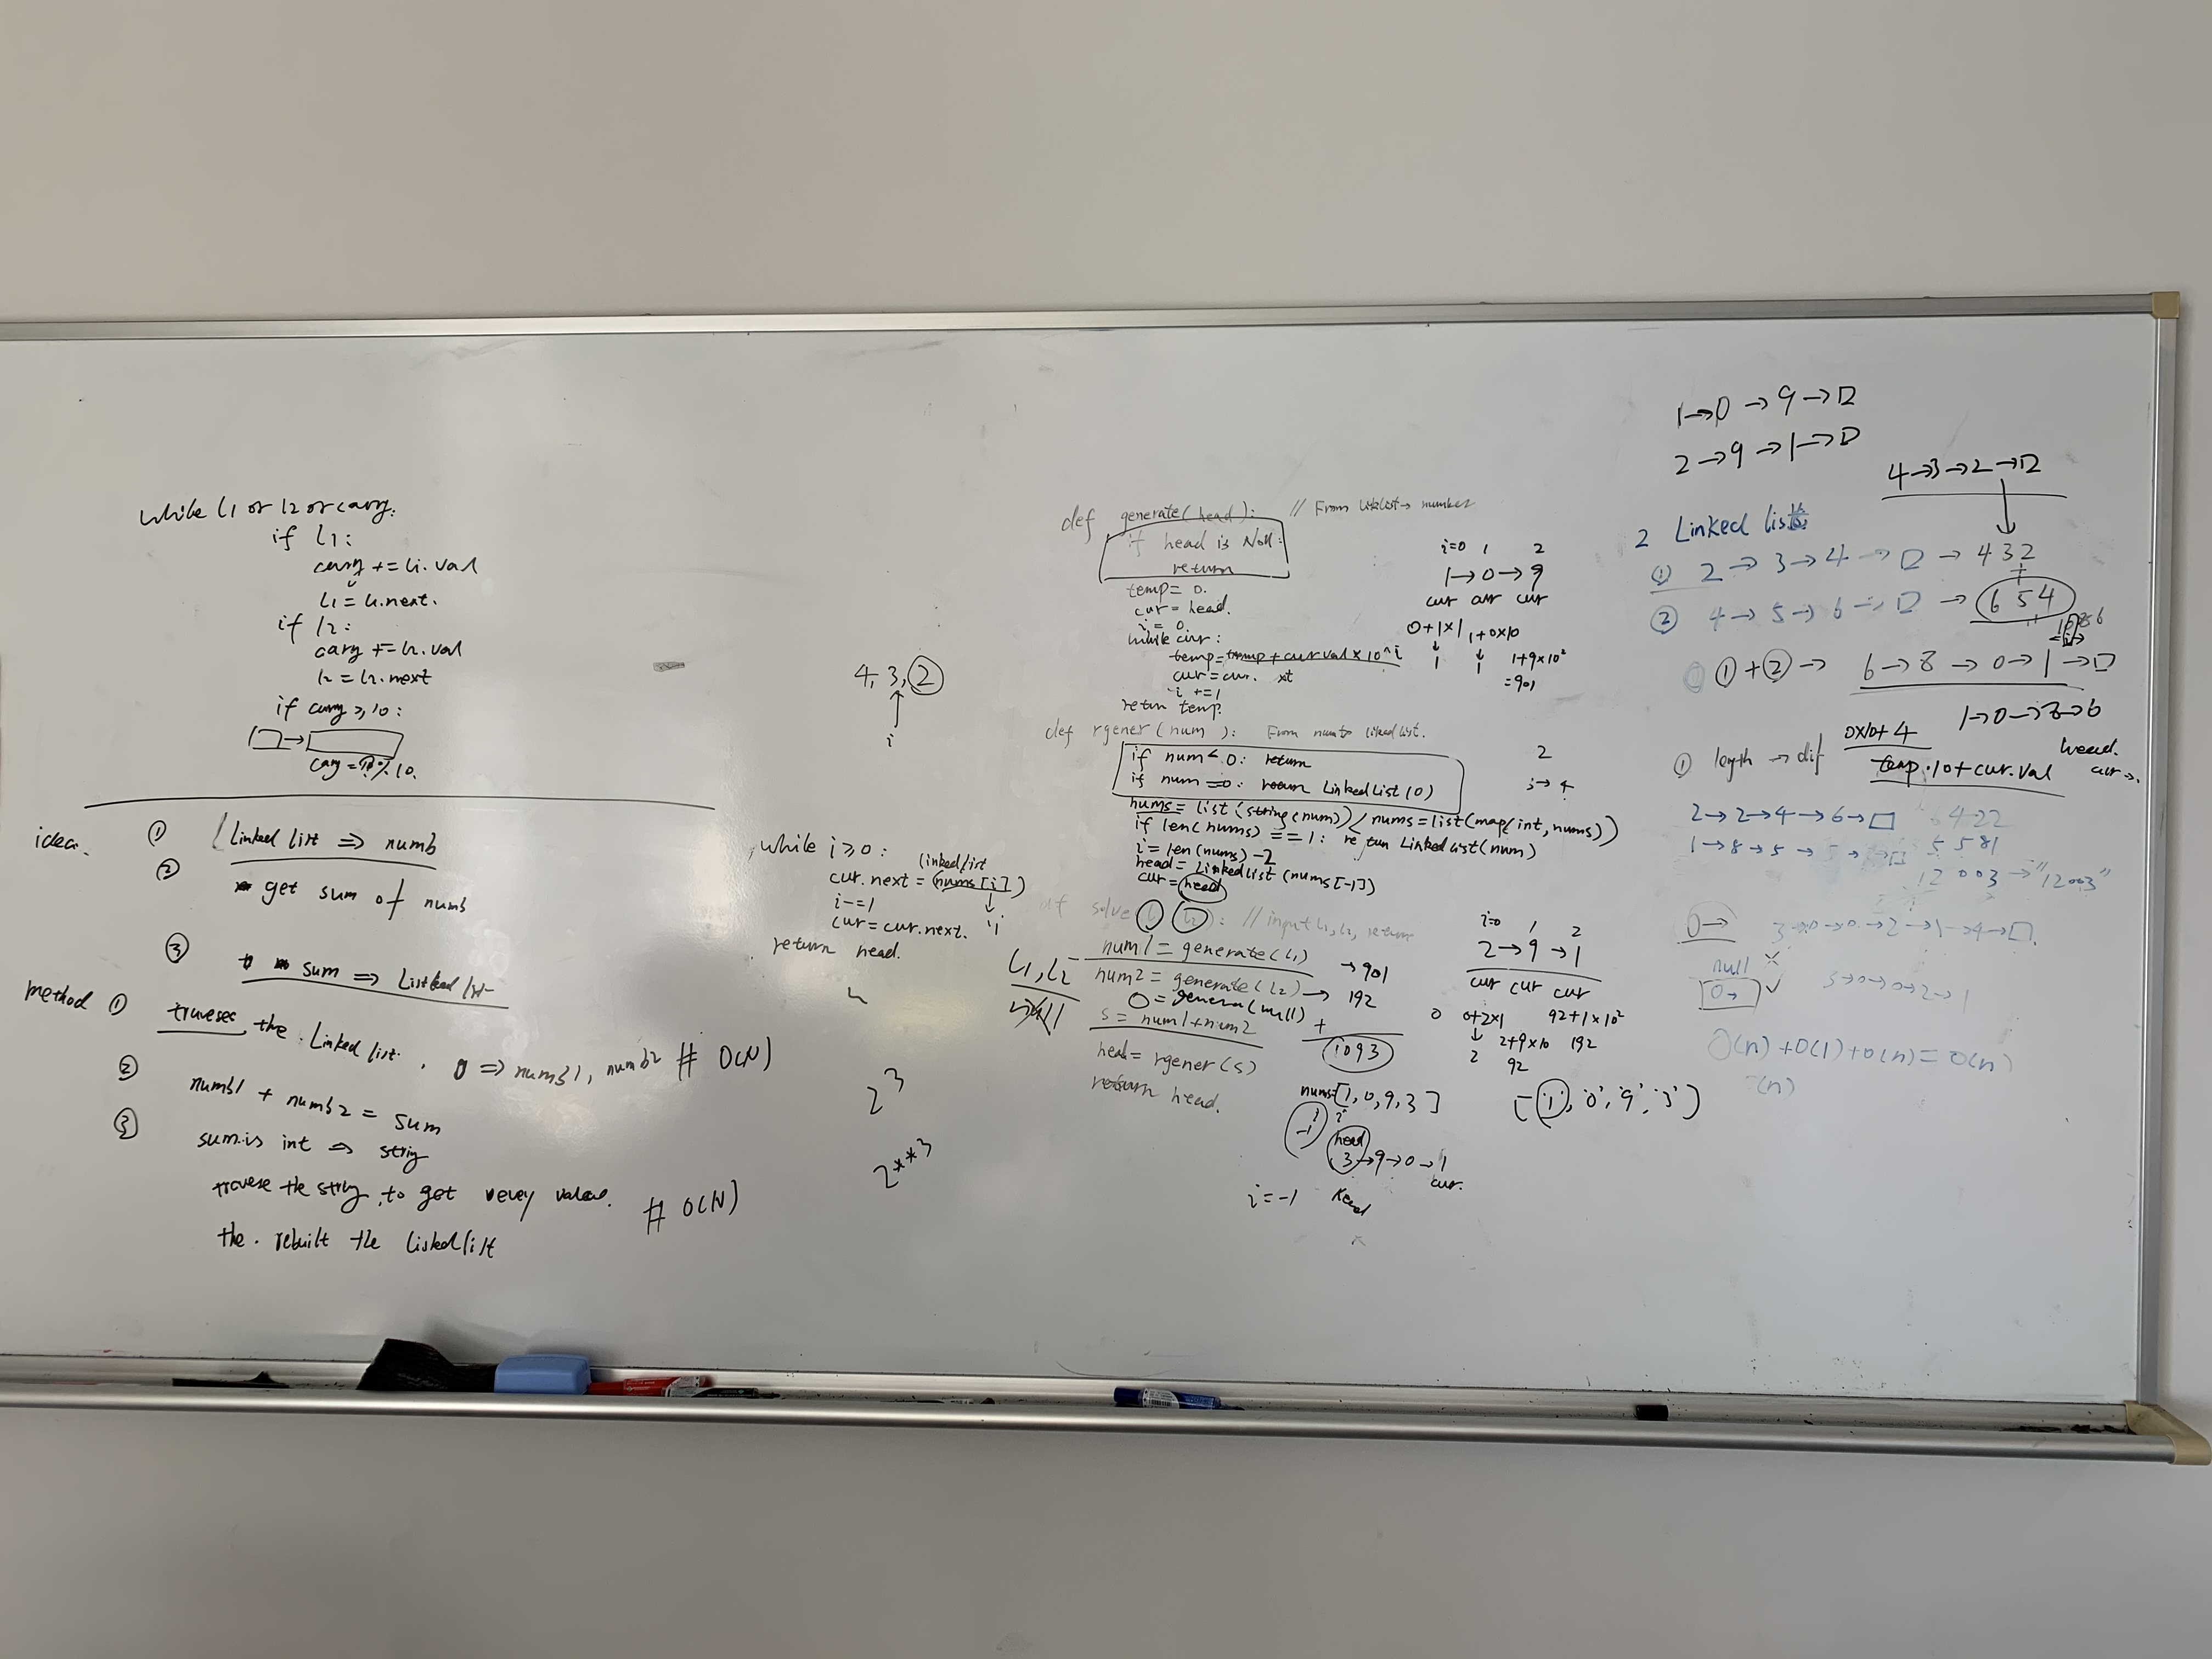 while l1 or l2 or carry:
if l1:
carry += l1.val
l1 = l1.next.
if l2:
carry += l2.val
l2 = l2.next
if carry ≥ 10:
10.
idea.
① Linked list ⇒ numb
②
get sum of numb
③
sum ⇒ Listked list
method ①
the Linked list. ⇒ numb1, numb2 # O(N)
②
numb1 + numb2 = sum
③
sum is int ⇒ string
the string, to get value.
# O(N)
the. rebuilt the Listked list
4, 3, 2
↑
i
while i ≥ 0:
linkedlist
cur.next = (nums[i])
i -= 1
cur = cur.next.
return head.
2³
2**3
def generate(head): // From → number
if head is Noll:
return
temp = 0.
cur = head.
i = 0.
while cur:
temp = temp + cur.val × 10^i
cur = cur. xt
i += 1
return temp.
i=0 1 2
1→0→9
cur cur cur
0+1×1 1+0×10
↓ ↓ 1+9×10²
1 1 =901
def rgener(num): From num to linkedlist.
if num < 0: return
if num == 0: return LinkedList(0)
nums = list(string(num)) / nums = list(map(int, nums))
if len(nums) == 1: return LinkedList(num)
i = len(nums) - 2
head = LinkedList(nums[-1])
cur = head
2
i→4
solve(l1, l2): // input l1, l2, return
L1, L2
null
num1 = generate(l1) → 901
num2 = generate(l2) → 192
0 = genera(null)
+
s = num1+num2
1093
head = rgener(s)
return head.
i=0 1 2
2→9→1
cur cur cur
0 0+2×1 92+1×10²
↓ 2+9×10 192
2 92
nums=[1, 0, 9, 3]
['1', '0', '9', '3']
-1
head
3→9→0→1
cur.
i = -1
head
1→0→9→□
2→9→1→□
4→3→2→□
2 Linked lists
① 2→3→4→□→432
+
② 4→5→6→□→654
1086
①+②→ 6→8→0→1→□
1→0→8→6
0×10+4
① length → dif
temp·10+cur.val
head.
cur→.
2→2→4→6→□ 6422
1→8→5→5→□ 5581
12003 → "12003"
0→
3→0→0→2→1→□.
null ×
0→ ✓
3→0→0→2→1
O(n)+O(1)+O(n)=O(n)
(n)